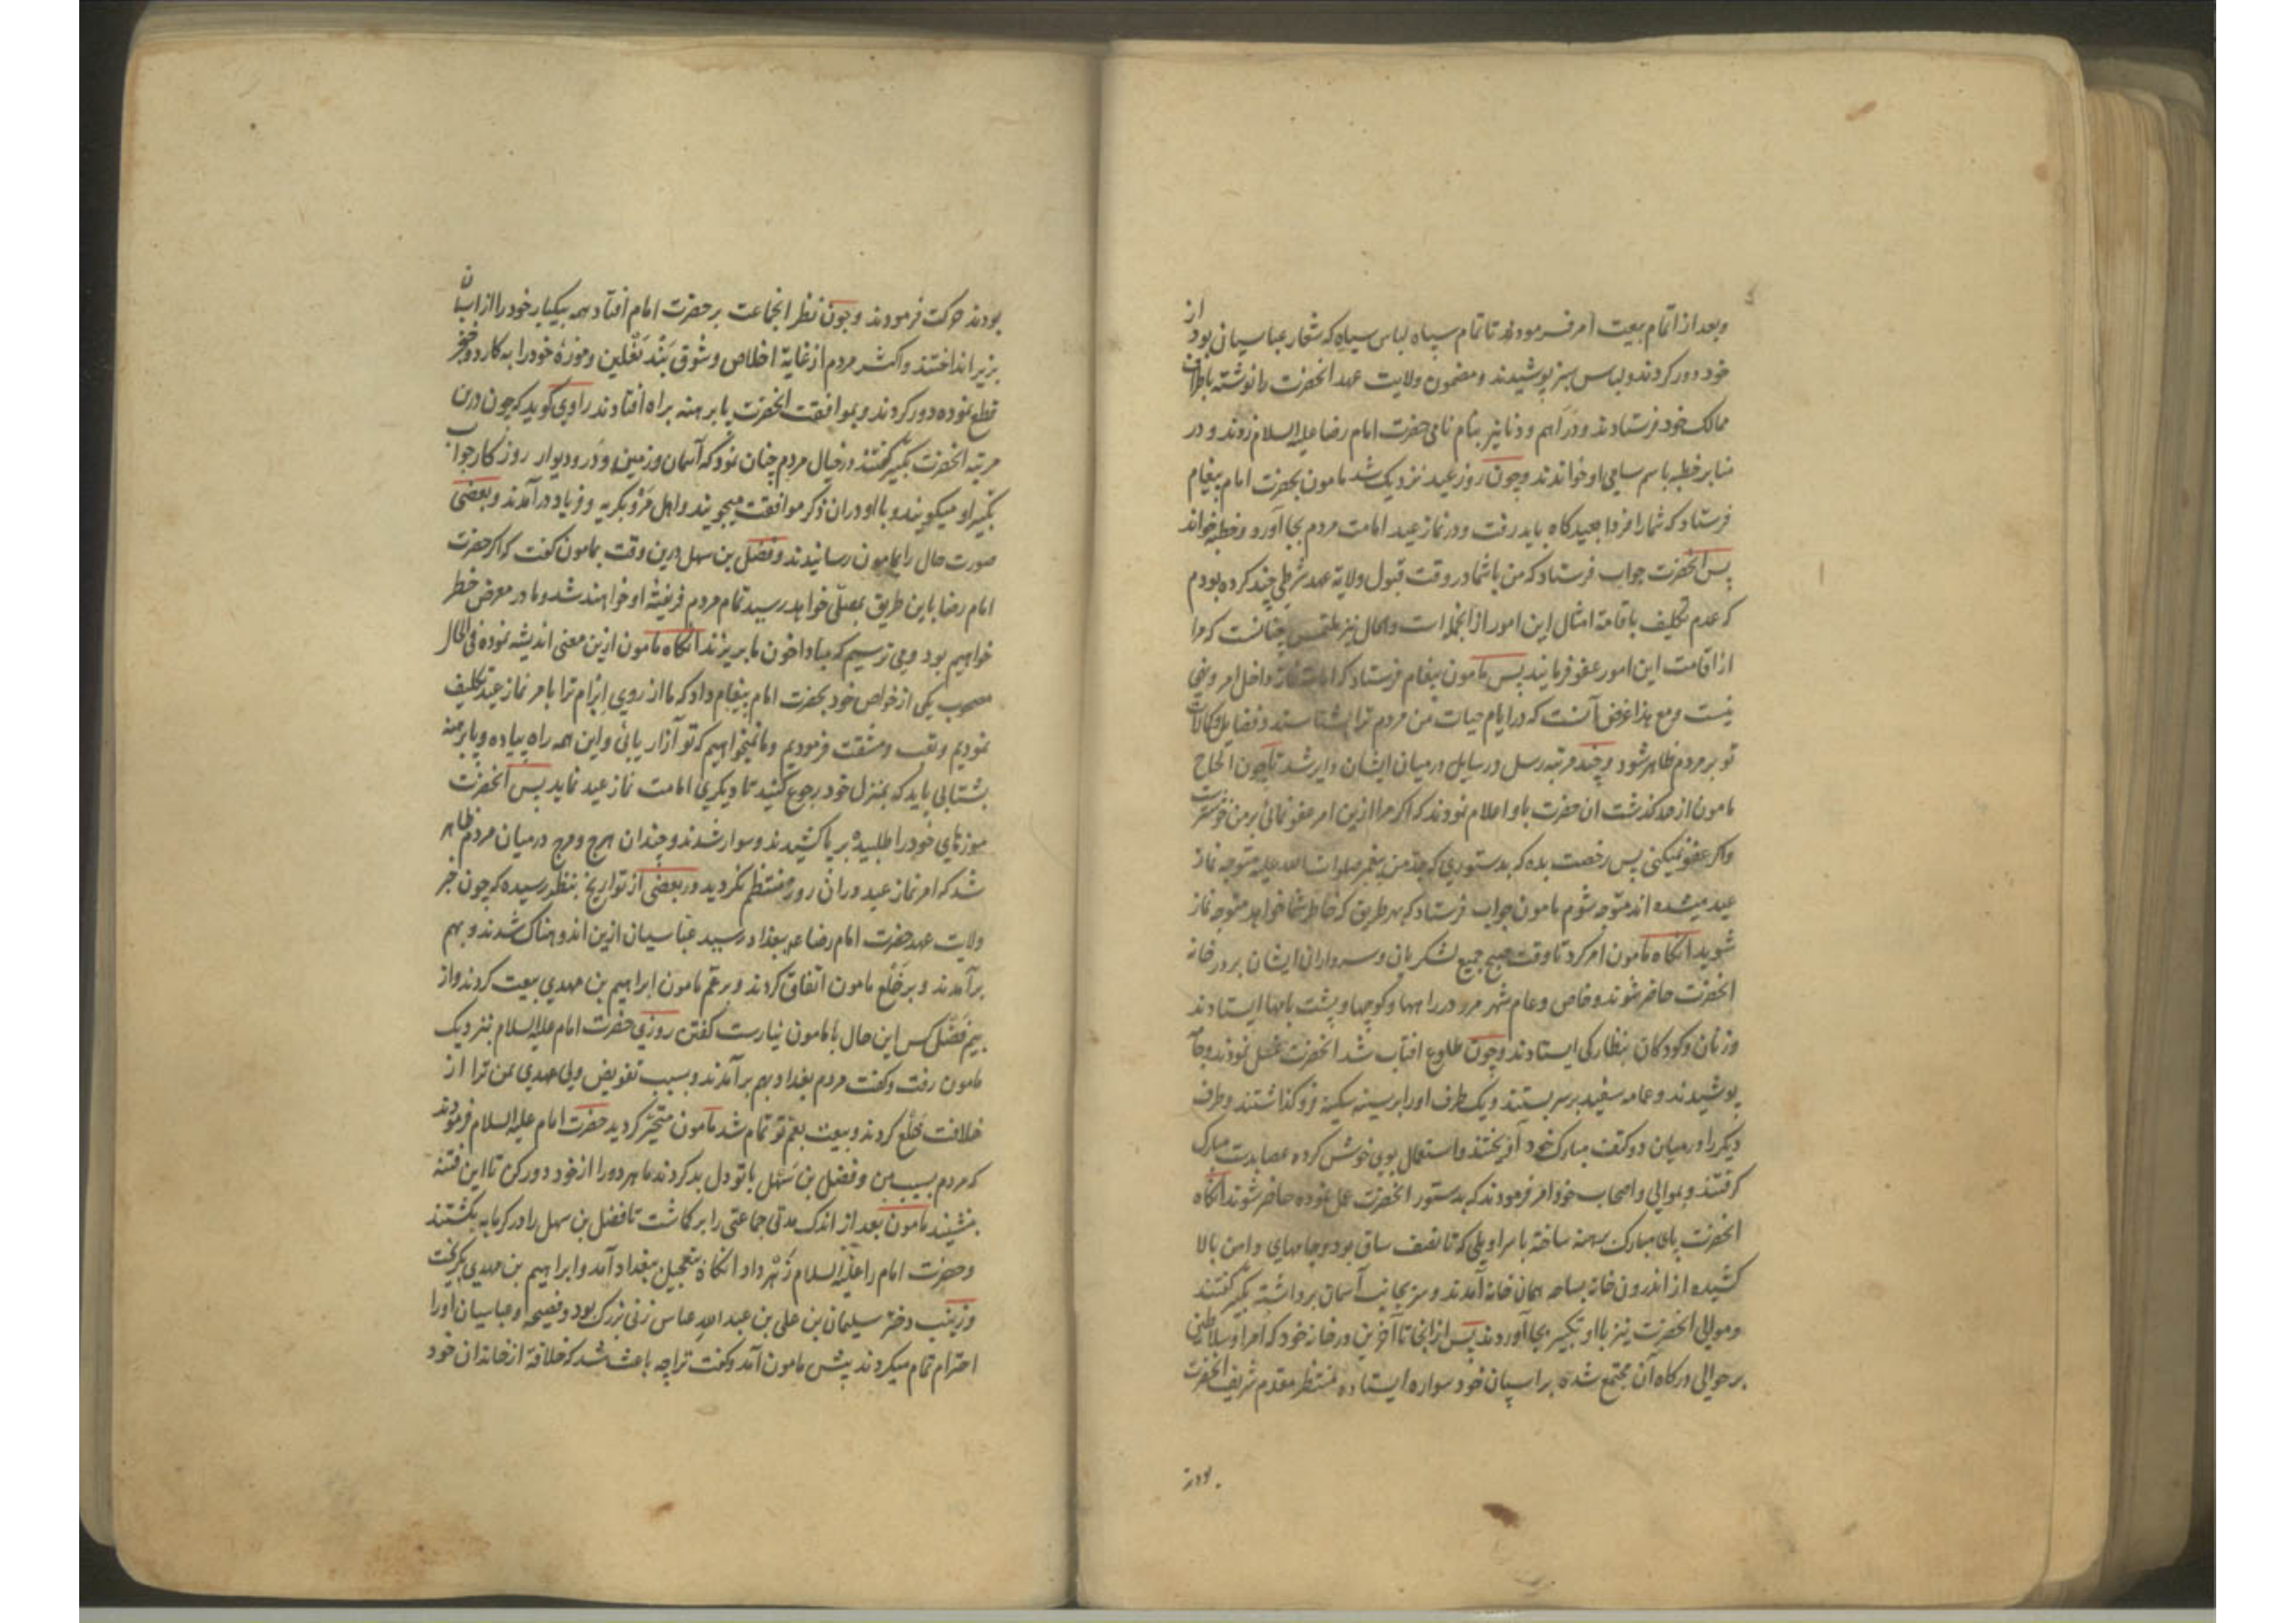 وبعد از اتمام بیعت امر فرمودند تا تمام سپاه لباس سیاه که شعار عباسیان بود از
خود دور کردند و لباس سبز پوشیدند و مضمون ولایت عهد انحضرت را نوشته باطراف
ممالک خود فرستادند و دراهم و دنانیر بنام نامی حضرت امام رضا علیه السلام زدند و در
منابر خطبه باسم سامی او خواندند و چون روز عید نزدیک شد مامون بحضرت امام پیغام
فرستاد که شما را فردا بعیدکاه باید رفت و در نماز عید امامت مردم بجا آورد و خطبه خواند
پس انحضرت جواب فرستاد که من با شما در وقت قبول ولایة عهد شرطی چند کرده بودم
که عدم تکلیف باقامة امثال این امور از انجمله است والحال نیز ملتمس چنانست که مرا
از اقامت این امور عفو فرمایند پس مامون پیغام فرستاد که امامت نماز داخل امر و نهی
نیست و مع هذا غرض آنست که در ایام حیات من مردم ترا بشناسند و فضایل و کمالات
تو بر مردم ظاهر شود و چند مرتبه رسل و رسایل در میان ایشان دایر شد تا چون الحاح
مامون از حد کذشت ان حضرت باو اعلام نمودند که اکر مرا ازین امر عفو نمائی بر من خوشتر است
واکر عفو نمیکنی پس رخصت بده که بدستوری که جد من پیغمبر صلوات الله علیه متوجه نماز
عید میشده اند متوجه شوم مامون جواب فرستاد که بهر طریق که خاطر شما خواهد متوجه نماز
شوید انکاه مامون امر کرد تا وقت صبح جمیع لشکریان و سرداران ایشان بر در خانه
انحضرت حاضر شوند و خاص و عام شهر مرو در راهها و کوچها و پشت بامها ایستادند
و زنان و کودکان بنظارکی ایستادند و چون طلوع افتاب شد انحضرت غسل نمودند و جامه
پوشیدند و عمامه سفید بر سر بستند و یک طرف او را بر سینه سکینه فرو کذاشتند و طرف
دیکر را در میان دو کتف مبارک خود آویختند و استعمال بوی خوش کرده عصا بدست مبارک
کرفتند و بموالی و اصحاب خود امر فرمودند که بدستور انحضرت عمل نموده حاضر شوند انکاه
انحضرت پای مبارک برهنه ساخته با سراویلی که تا نصف ساق بود و جامهای دامن بالا
کشیده از اندرون خانه بساحه همان خانه آمدند و سر بجانب آسمان برداشته تکبیر کفتند
وموالی انحضرت نیز با او تکبیر بجا آوردند پس از انجا تا آخرین در خانه خود که امرا و سلاطین
بر حوالی درکاه آن مجتمع شده بر اسپان خود سواره ایستاده منتظر مقدم شریف انحضرت
بودند
بودند حرکت فرمودند و چون نظر انجماعت بر حضرت امام افتاد همه بیکبار خود را از اسبان
بزیر انداختند و اکثر مردم از غایة اخلاص و شوق بند نعلین و موزهٔ خود را به کارد و خنجر
قطع نموده دور کردند و بموافقت انحضرت پا برهنه براه افتادند راوی کوید که چون درین
مرتبه انحضرت تکبیر کفتند در خیال مردم چنان نمود که آسمان و زمین و در و دیوار روز کار جواب
تکبیر او میکویند و با او در ان ذکر موافقت میجویند و اهل مرو بکریه و فریاد در آمدند و بعضی
صورت حال را بمامون رسانیدند و فضل بن سهل درین وقت بمامون کفت که اکر حضرت
امام رضا باین طریق بمصلی خواهد رسید تمام مردم فریفتهٔ او خواهند شد و ما در معرض خطر
خواهیم بود و می ترسیم که مبادا خون ما بریزند انکاه مامون ازین معنی اندیشه نموده فی الحال
مصحوب یکی از خواص خود بحضرت امام پیغام داد که ما از روی ابرام ترا بامر نماز عید تکلیف
نمودیم و تعب و مشقت فرمودیم و ما نمیخواهیم که تو آزار یابی و این همه راه پیاده و پا برهنه
بشتابی باید که بمنزل خود رجوع کنید تا دیکری امامت نماز عید نماید پس انحضرت
موزهای خود را طلبیده بر پا کشیدند و سوار شدند و چندان هرج و مرج در میان مردم ظاهر
شد که امر نماز عید در ان روز منتظم نکردید و در بعضی از تواریخ بنظر رسیده که چون خبر
ولایت عهد حضرت امام رضا ع ببغداد رسید عباسیان ازین اندوهناک شدند و بهم
برآمدند و بر خلع مامون اتفاق کردند و بر عم مامون ابراهیم بن مهدی بیعت کردند و از
بیم فضل کس این حال با مامون نیارست کفتن روزی حضرت امام علیه السلام بنزدیک
مامون رفت و کفت مردم بغداد بهم برآمدند و بسبب تفویض ولی عهدی بمن ترا از
خلافت خلع کردند و بیعت بعم تو تمام شد مامون متحیر کردید حضرت امام علیه السلام فرمودند
که مردم بسبب من و فضل بن سهل با تو دل بد کردند ما هر دو را از خود دور کن تا این فتنه
بنشیند مامون بعد از اندک مدتی جماعتی را برکاشت تا فضل بن سهل را در کرمابه بکشتند
و حضرت امام را علیه السلام زهر داد انکاه بتعجیل ببغداد آمد و ابراهیم بن مهدی بکریخت
و زینب دختر سلیمان بن علی بن عبد الله عباس زنی بزرک بود و فصیحه و عباسیان او را
احترام تمام میکردند پیش مامون آمد و کفت ترا چه باعث شد که خلافة از خاندان خود